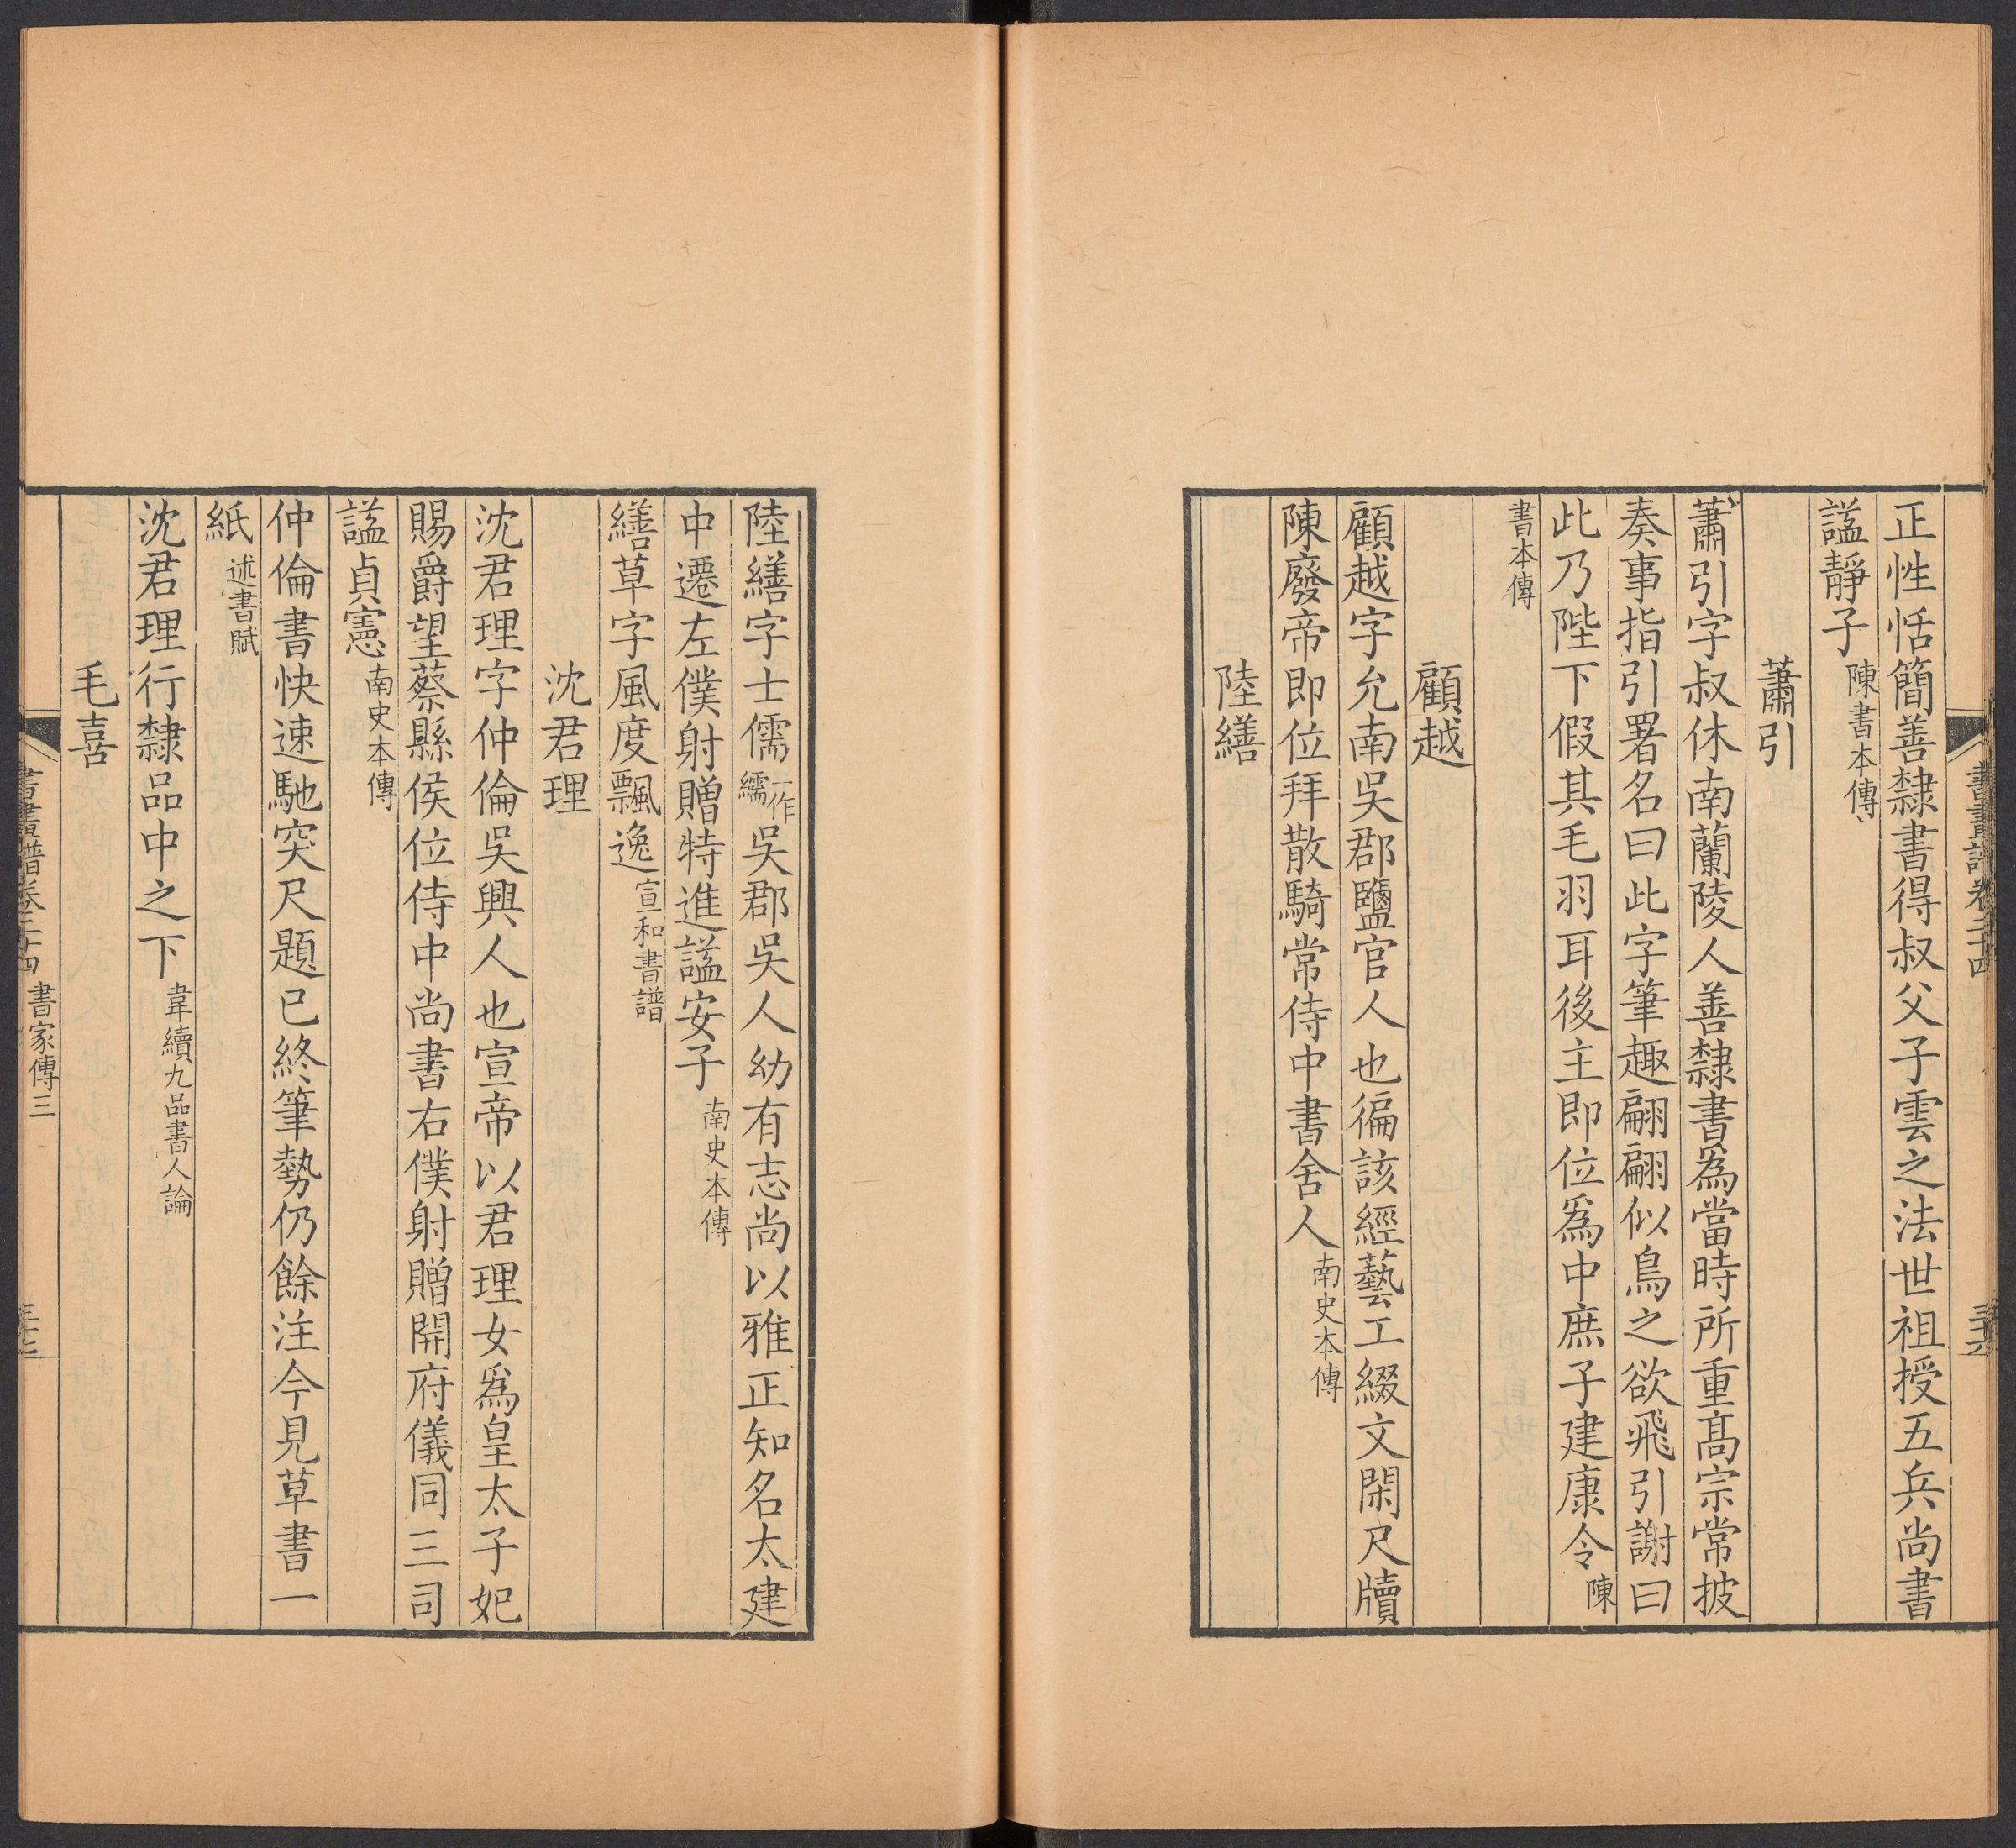 書畫譜卷二十四
正性恬簡善隸書得叔父子雲之法世祖授五兵尚書
謚靜子陳書本傳
蕭引
蕭引字叔休南蘭陵人善隸書爲當時所重髙宗常披
奏事指引署名曰此字筆趣翩翩似鳥之欲飛引謝曰
此乃陛下假其毛羽耳後主即位爲中庶子建康令陳
書本傳
顧越
顧越字允南吳郡鹽官人也徧該經藝工綴文閑尺牘
陳廢帝即位拜散騎常侍中書舍人南史本傳
陸繕
陸繕字士儒一作繻吳郡吳人幼有志尚以雅正知名太建
中遷左僕射贈特進謚安子南史本傳
繕草字風度飄逸宣和書譜
沈君理
沈君理字仲倫吳興人也宣帝以君理女爲皇太子妃
賜爵望蔡縣侯位侍中尚書右僕射贈開府儀同三司
謚貞憲南史本傳
仲倫書快速馳突尺題已終筆勢仍餘注今見草書一
紙述書賦
沈君理行隸品中之下韋續九品書人論
毛喜
書畫譜卷二十四 書家傳三